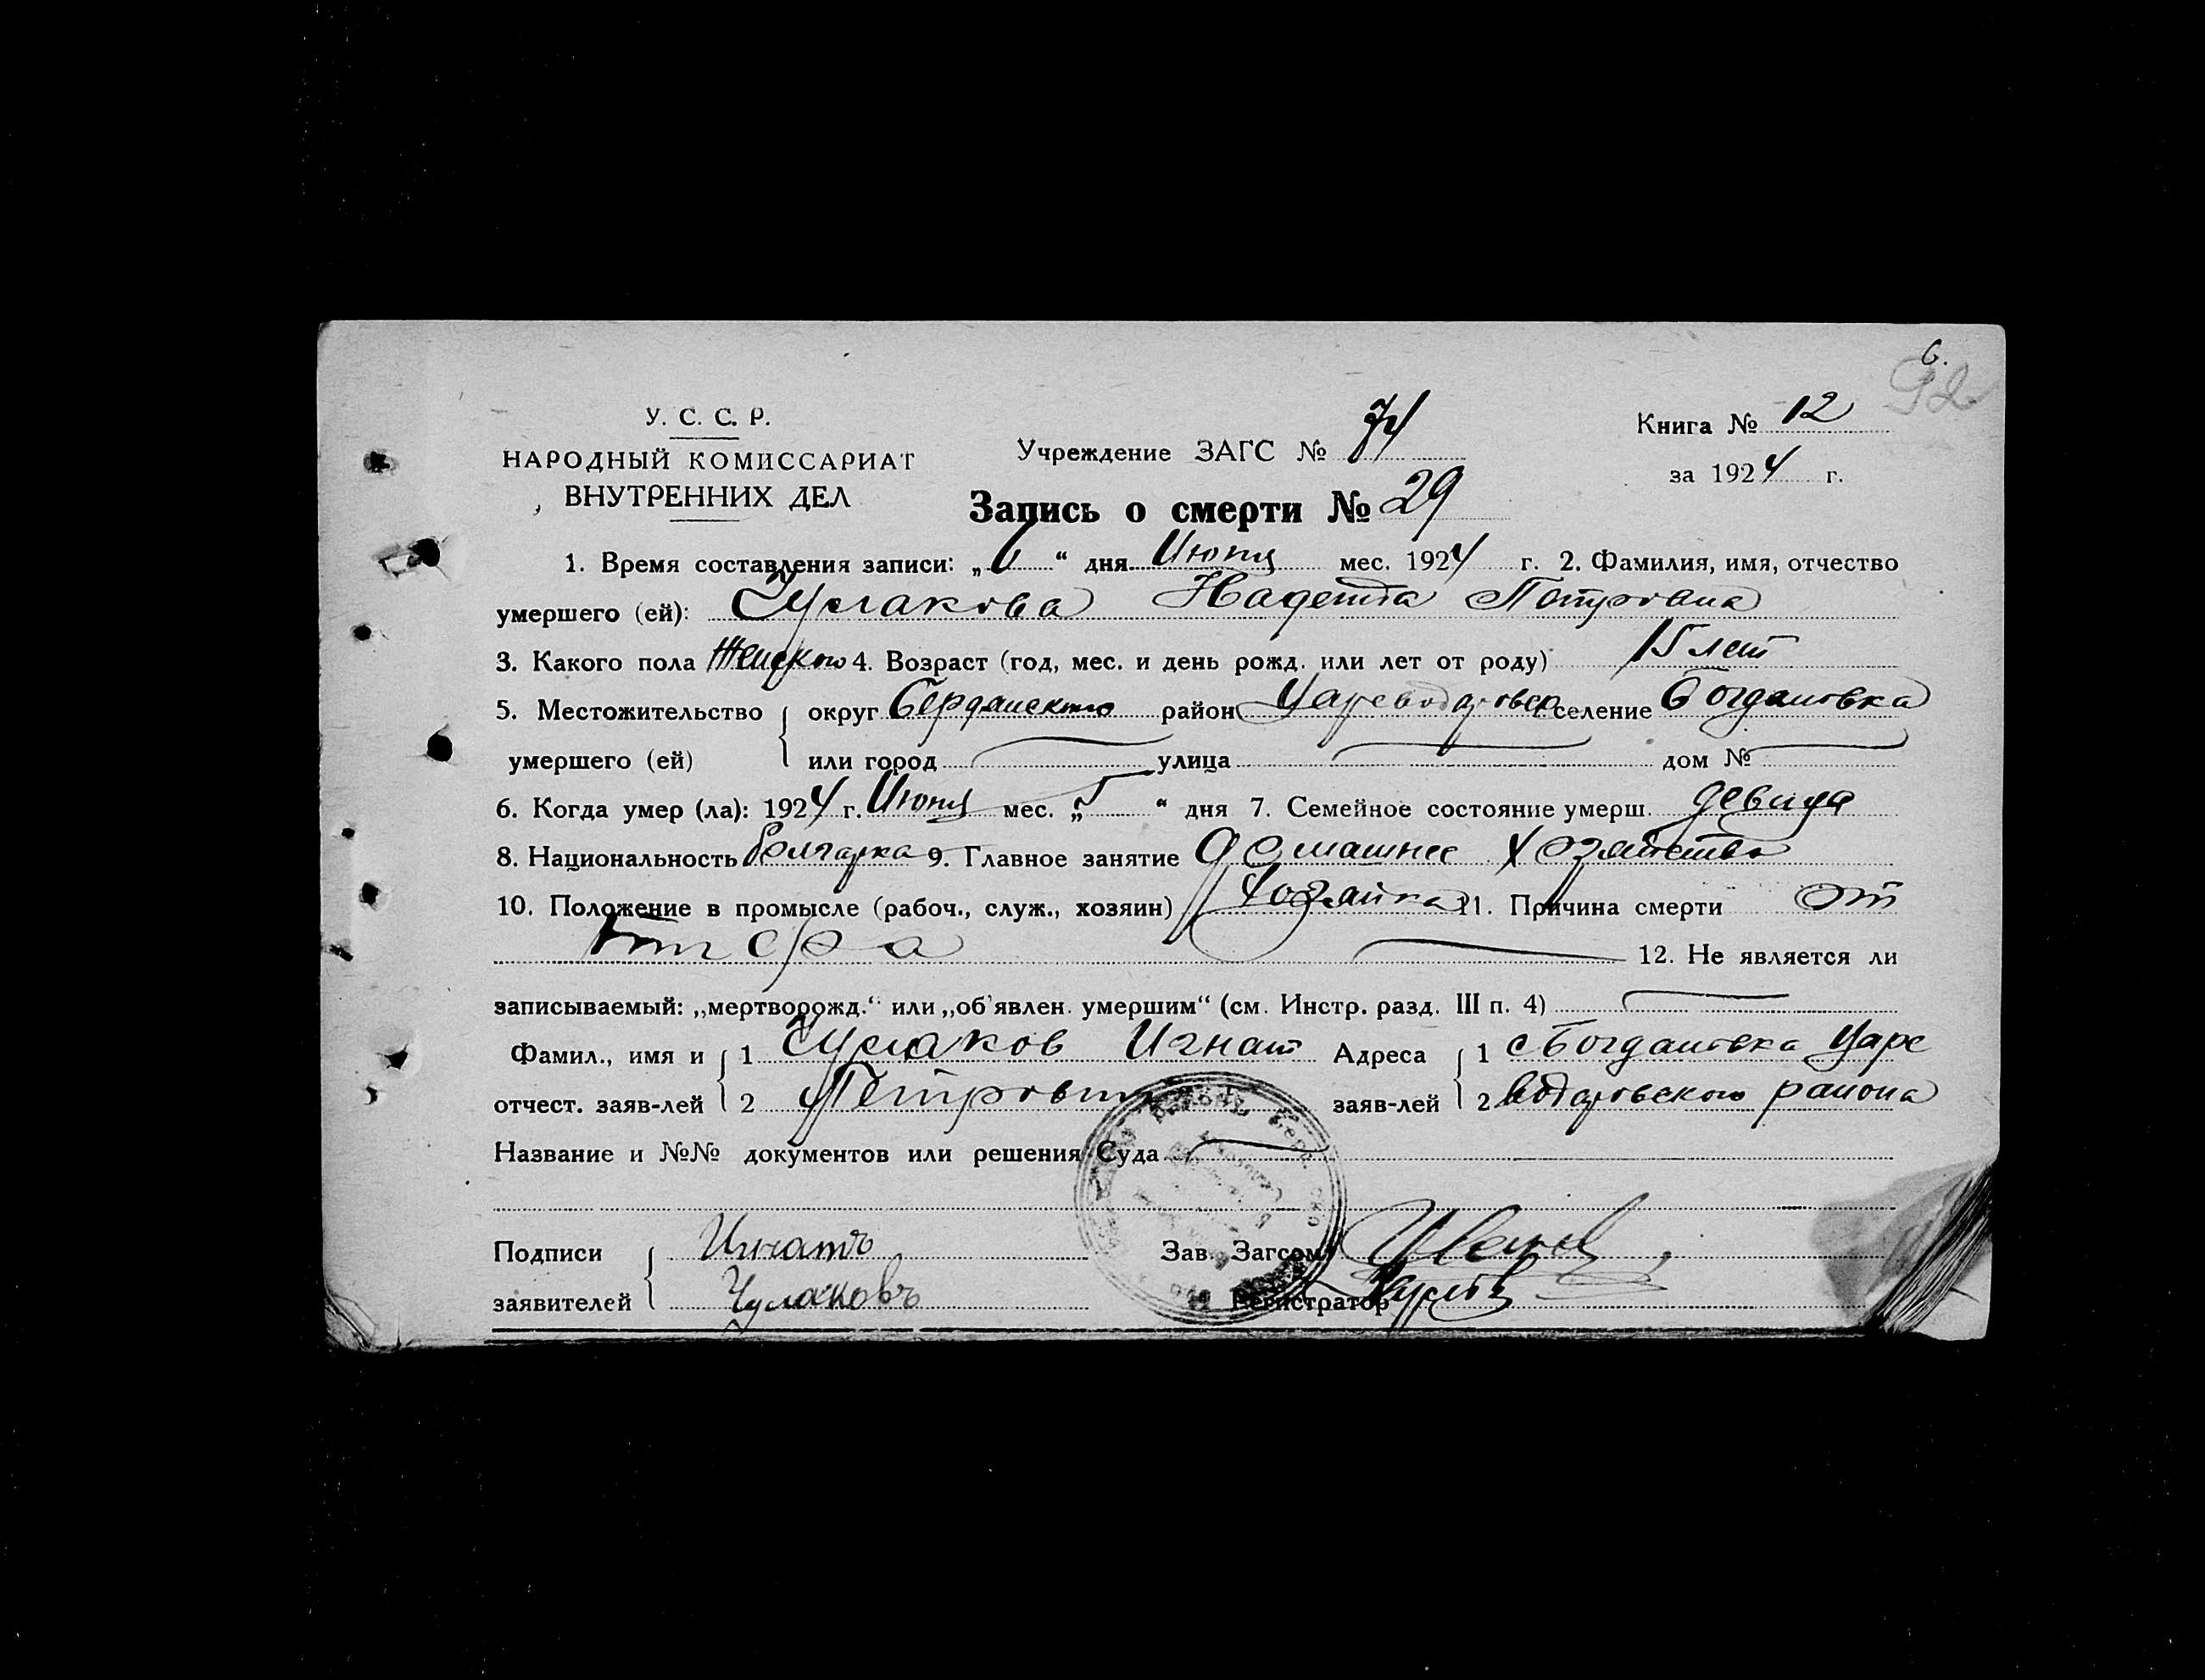 6.
92
У. С. С. Р.
НАРОДНЫЙ КОМИССАРИАТ
ВНУТРЕННИХ ДЕЛ
Учреждение ЗАГС № 74
Книга № 12
за 1924 г.
Запись о смерти № 29
1. Время составления записи: „6“ дня Июня мес. 1924 г. 2. Фамилия, имя, отчество
умершего (ей): Чулакова Надежда Петровна
3. Какого пола Женского 4. Возраст (год, мес. и день рожд. или лет от роду) 15 лет
5. Местожительство округ Бердянского район Цареводаровск селение Богдановка
умершего (ей) или город улица дом №
6. Когда умер (ла): 1924 г. Июня мес. „5“ дня 7. Семейное состояние умерш. девица
8. Национальность болгарка 9. Главное занятие домашнее хозяйство
10. Положение в промысле (рабоч., служ., хозяин) Хозяйка 11. Причина смерти от
12. Не является ли
записываемый: „мертворожд.“ или „об'явлен. умершим“ (см. Инстр. разд. III п. 4)
Фамил., имя и 1 Чулаков Игнат Адреса 1 с Богдановка Царе
отчест. заяв-лей 2 Петрович заяв-лей 2 водаровского района
Название и №№ документов или решения Суда
Подписи Игнатъ Зав. Загсом
заявителей Чулаковъ Регистратор